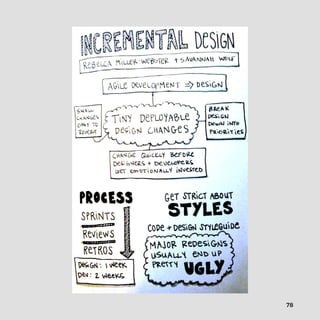 INCREMENTAL DESIGN
REBECCA MILLER-WEBSTER + SAVANNAH WOLF
AGILE DEVELOPMENT => DESIGN
SMALL
CHANGES
EASY TO
REVERT
TINY DEPLOYABLE
DESIGN CHANGES
BREAK
DESIGN
DOWN INTO
PRIORITIES
CHANGE QUICKLY BEFORE
DESIGNERS + DEVELOPERS
GET EMOTIONALLY INVESTED
PROCESS
SPRINTS
REVIEWS
RETROS
DESIGN: 1 WEEK
DEV: 2 WEEKS
GET STRICT ABOUT
STYLES
CODE + DESIGN STYLEGUIDE
MAJOR REDESIGNS
USUALLY END UP
PRETTY UGLY
78